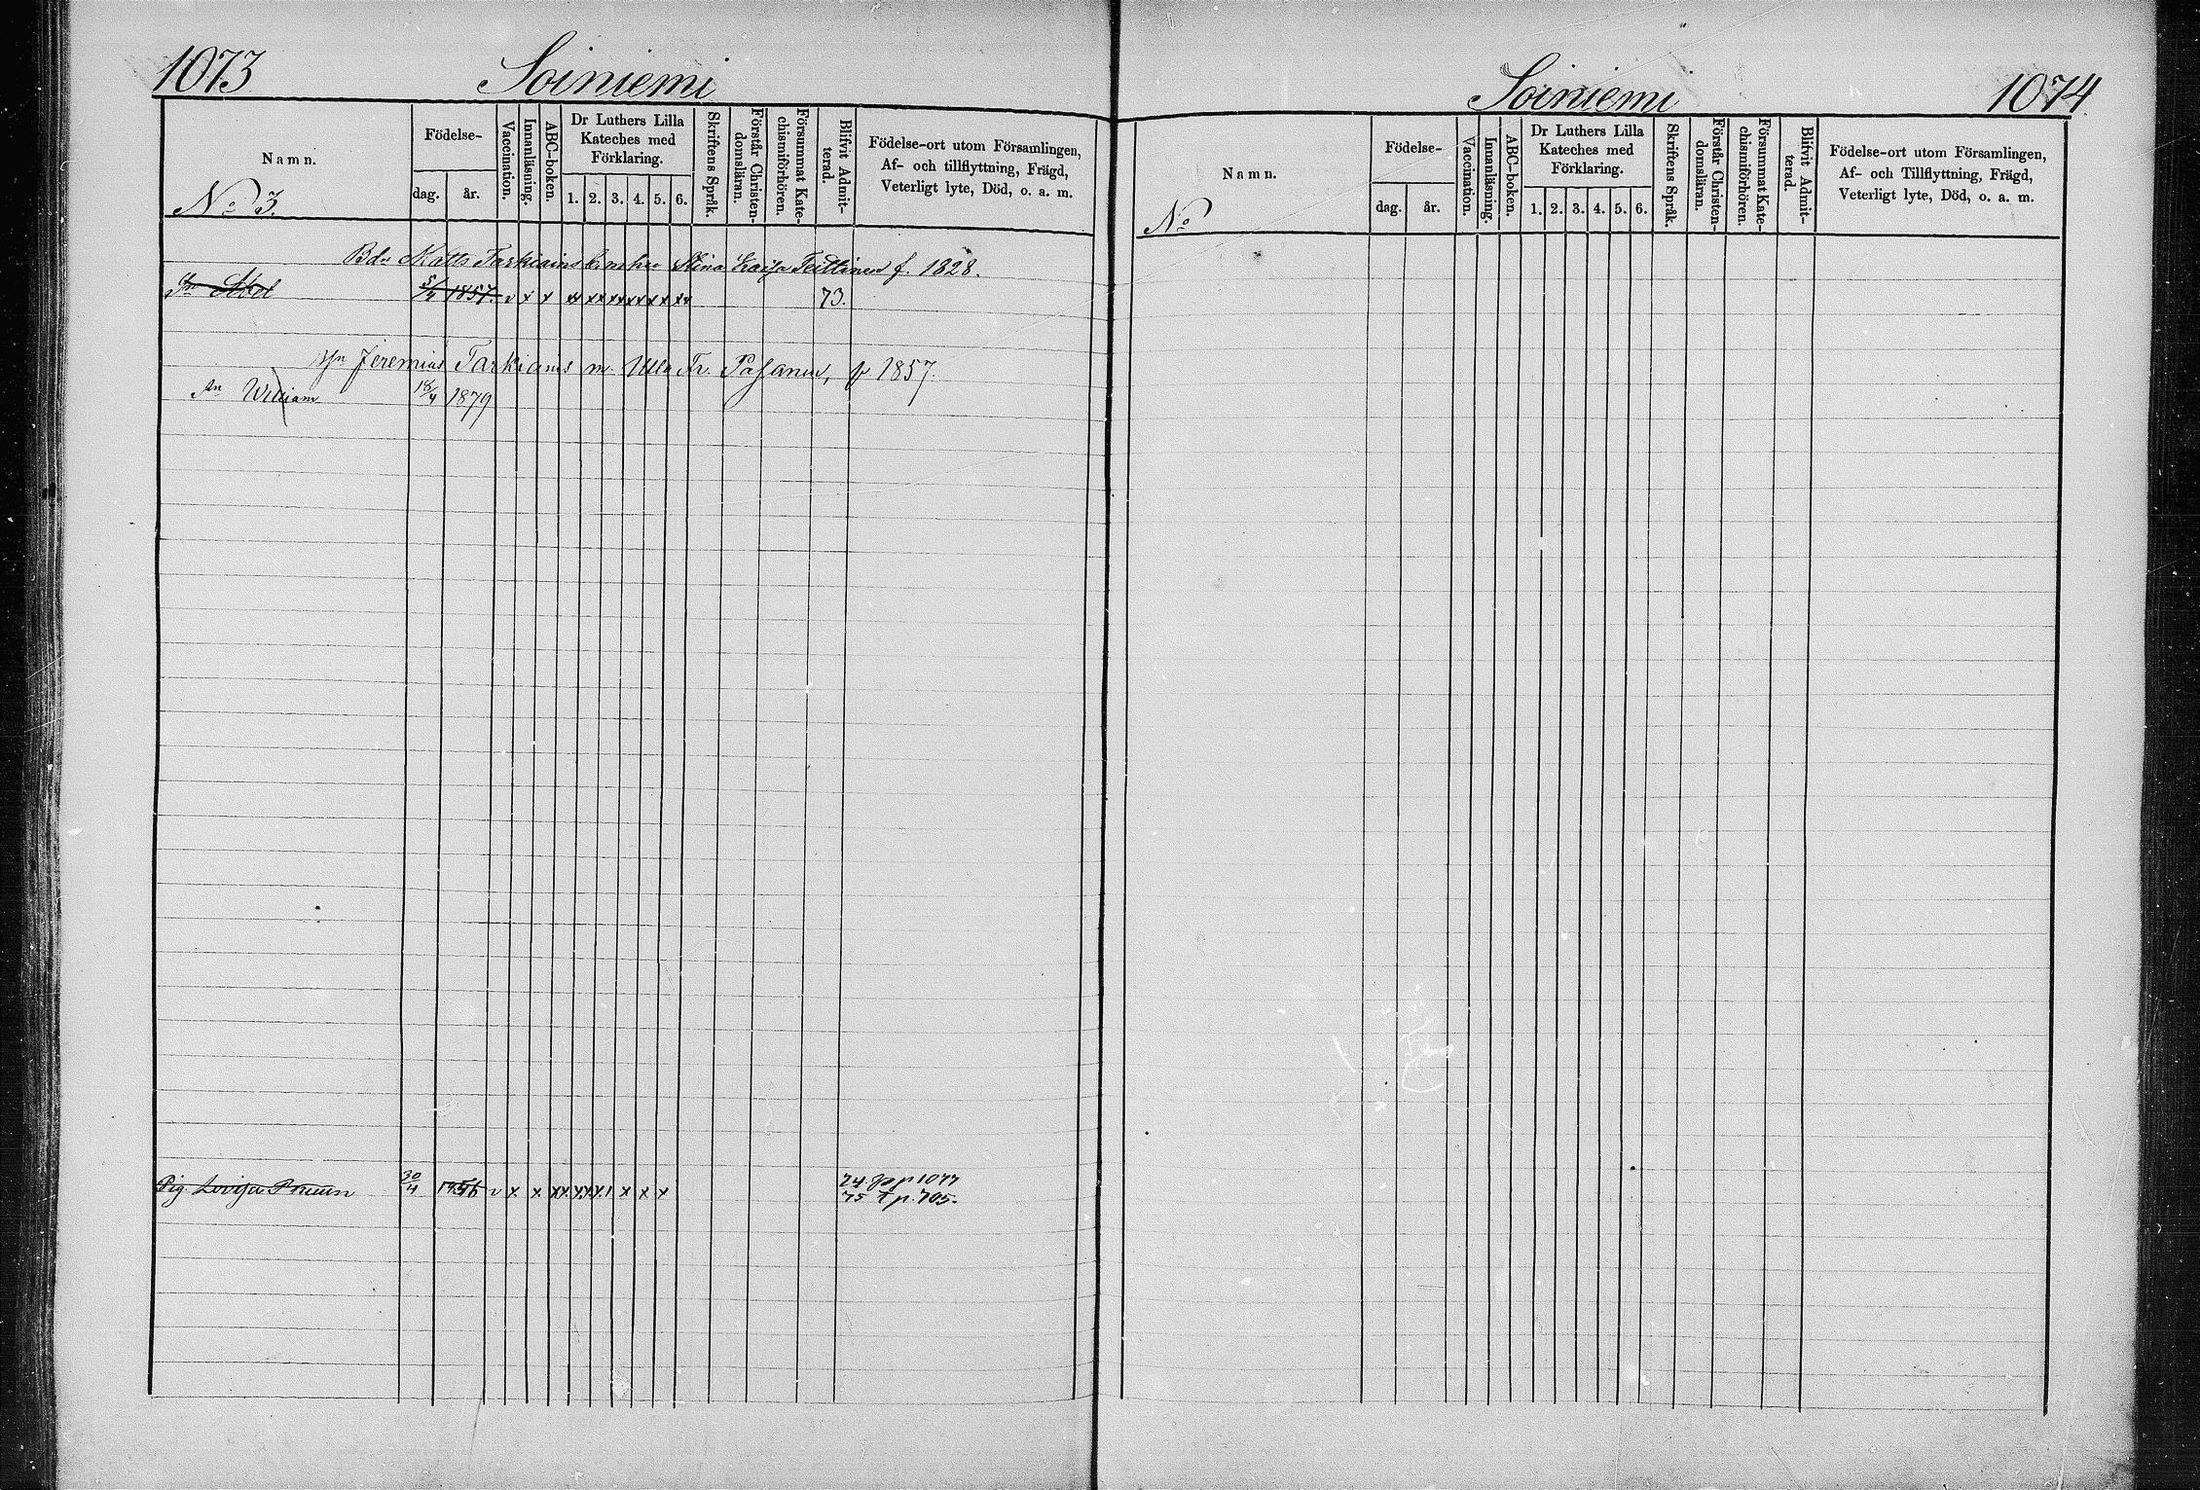 1073 Soiniemi
Namn. Födelse- dag. år. Vaccination. Innanläsning. ABC-boken. Dr Luthers Lilla Kateches med Förklaring. 1. 2. 3. 4. 5. 6. Skriftens Språk. Förstår Christendomsläran. Försummat Katechismiförhören. Blifvit Admitterad. Födelse-ort utom Församlingen, Af- och tillflyttning, Frägd, Veterligt lyte, Död, o. a. m.
No 3.
Bdn Matts Tarkiains Stina Caisa Teittinen f. 1828.
Sn Abel 5/4 1857. v x x xx xx xx xx xx xx 73.
Sn Jeremias Tarkiains m. Ulla Fr. Pasanen, f 1857.
Sn William 18/4 1879
Pig. Lovisa 30/4 1856 v x x xx x x x 74 p 1077
75 p. 705.
Soiniemi 1074
Namn. Födelse- dag. år. Vaccination. Innanläsning. ABC-boken. Dr Luthers Lilla Kateches med Förklaring. 1. 2. 3. 4. 5. 6. Skriftens Språk. Förstår Christendomsläran. Försummat Katechismiförhören. Blifvit Admitterad. Födelse-ort utom Församlingen, Af- och Tillflyttning, Frägd, Veterligt lyte, Död, o. a. m.
No